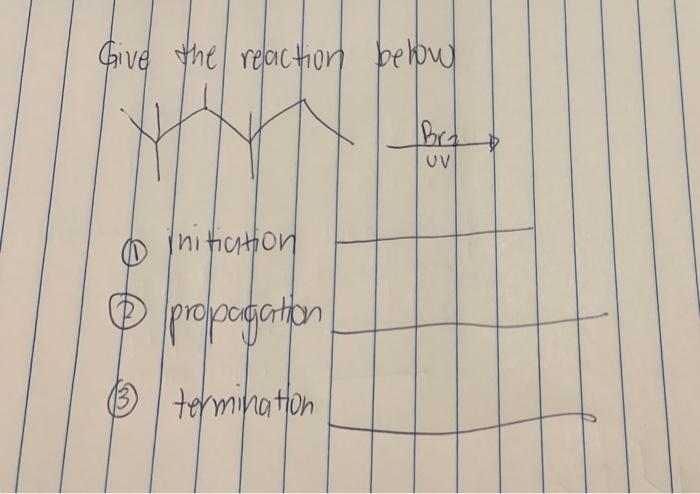 Give the reaction below
Br2
UV
① initiation
② propagation
③ termination